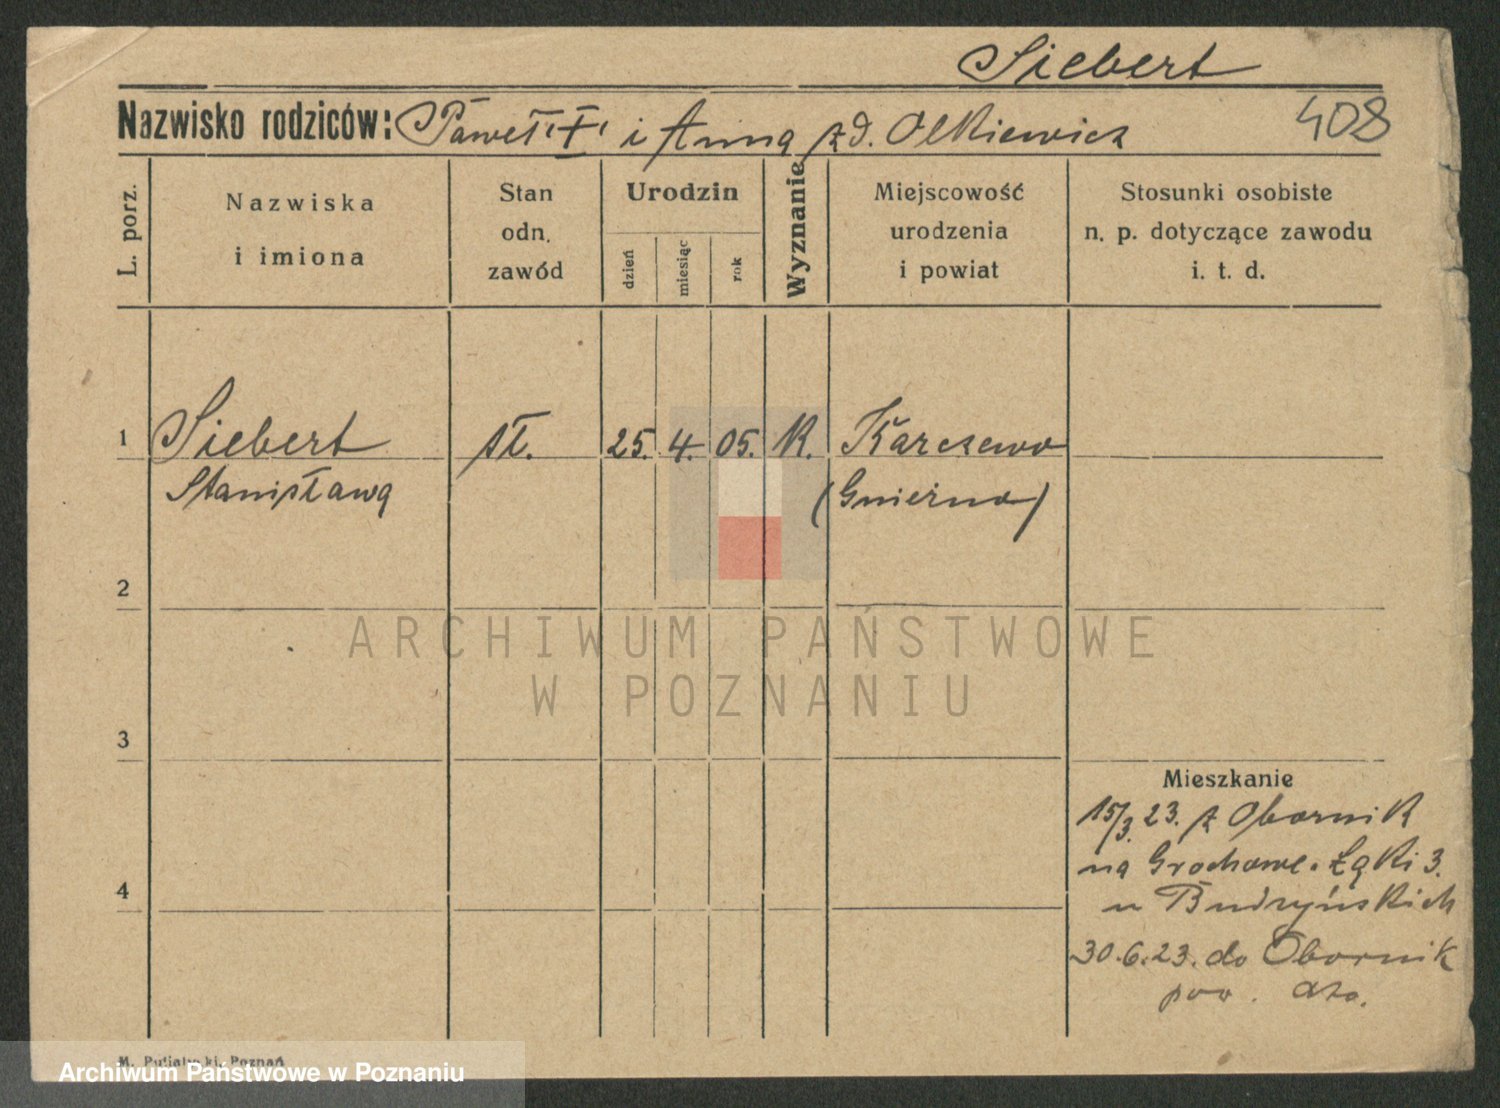 Siebert
Nazwisko rodziców: Paweł "†" i Anna zd. Olkiewicz
408
L. porz.
Nazwiska
i imiona
Stan
odn.
zawód
Urodzin
dzień
miesiąc
rok
Wyznanie
Miejscowość
urodzenia
i powiat
Stosunki osobiste
n. p. dotyczące zawodu
i. t. d.
1 Siebert sł. 25. 4. 05. K. Karczewo
Stanisława (Gniezno)
2
3
4
Mieszkanie
15/3. 23. z Obornik
na Grochowe-Łąki 3.
u Budzyńskich
30.6.23. do Obornik
pow. dto.
ARCHIWUM PAŃSTWOWE
W POZNANIU
M. Putiatycki, Poznań
Archiwum Państwowe w Poznaniu